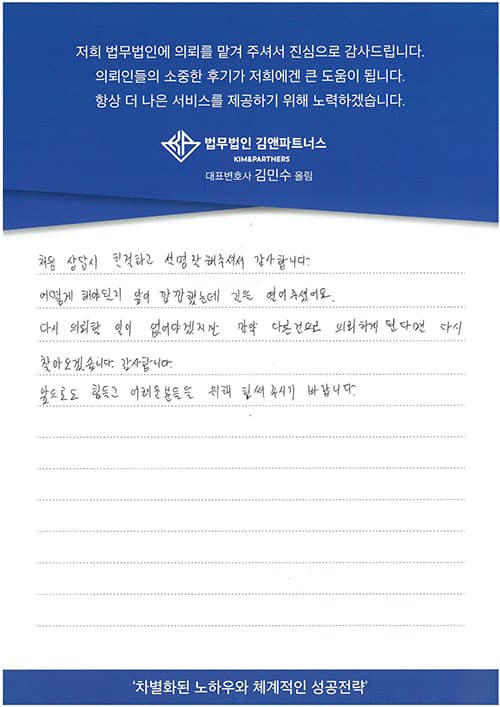 저희 법무법인에 의뢰를 맡겨 주셔서 진심으로 감사드립니다.
의뢰인들의 소중한 후기가 저희에겐 큰 도움이 됩니다.
항상 더 나은 서비스를 제공하기 위해 노력하겠습니다.
법무법인 김앤파트너스
KIM&PARTNERS
대표변호사 김민수 올림
처음 상담시 친절하고 설명잘해주셔서 감사합니다.
어떻게 해야된지 앞이 깜깜했는데 길을 열어주셨어요.
다시 의뢰할 일이 없어야겠지만 만약 다른건으로 의뢰하게 된다면 다시
찾아오겠습니다. 감사합니다.
앞으로도 힘들고 어려운분들을 위해 힘써주시기 바랍니다.
'차별화된 노하우와 체계적인 성공전략'